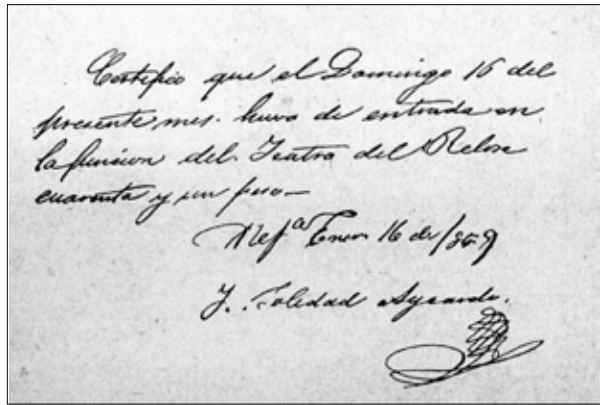 Certifico que el Domingo 16 del
presente mes. huvo de entrada en
la funcion del Teatro del Relox
cuarenta y un peso—
Enero 16 de /859